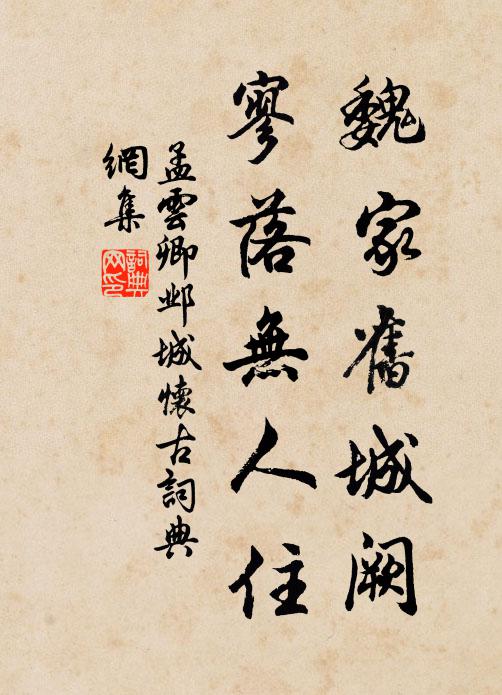 魏家舊城阙
寥落無人住
孟雲卿邺城懷古詞典
網集
詞典
网印